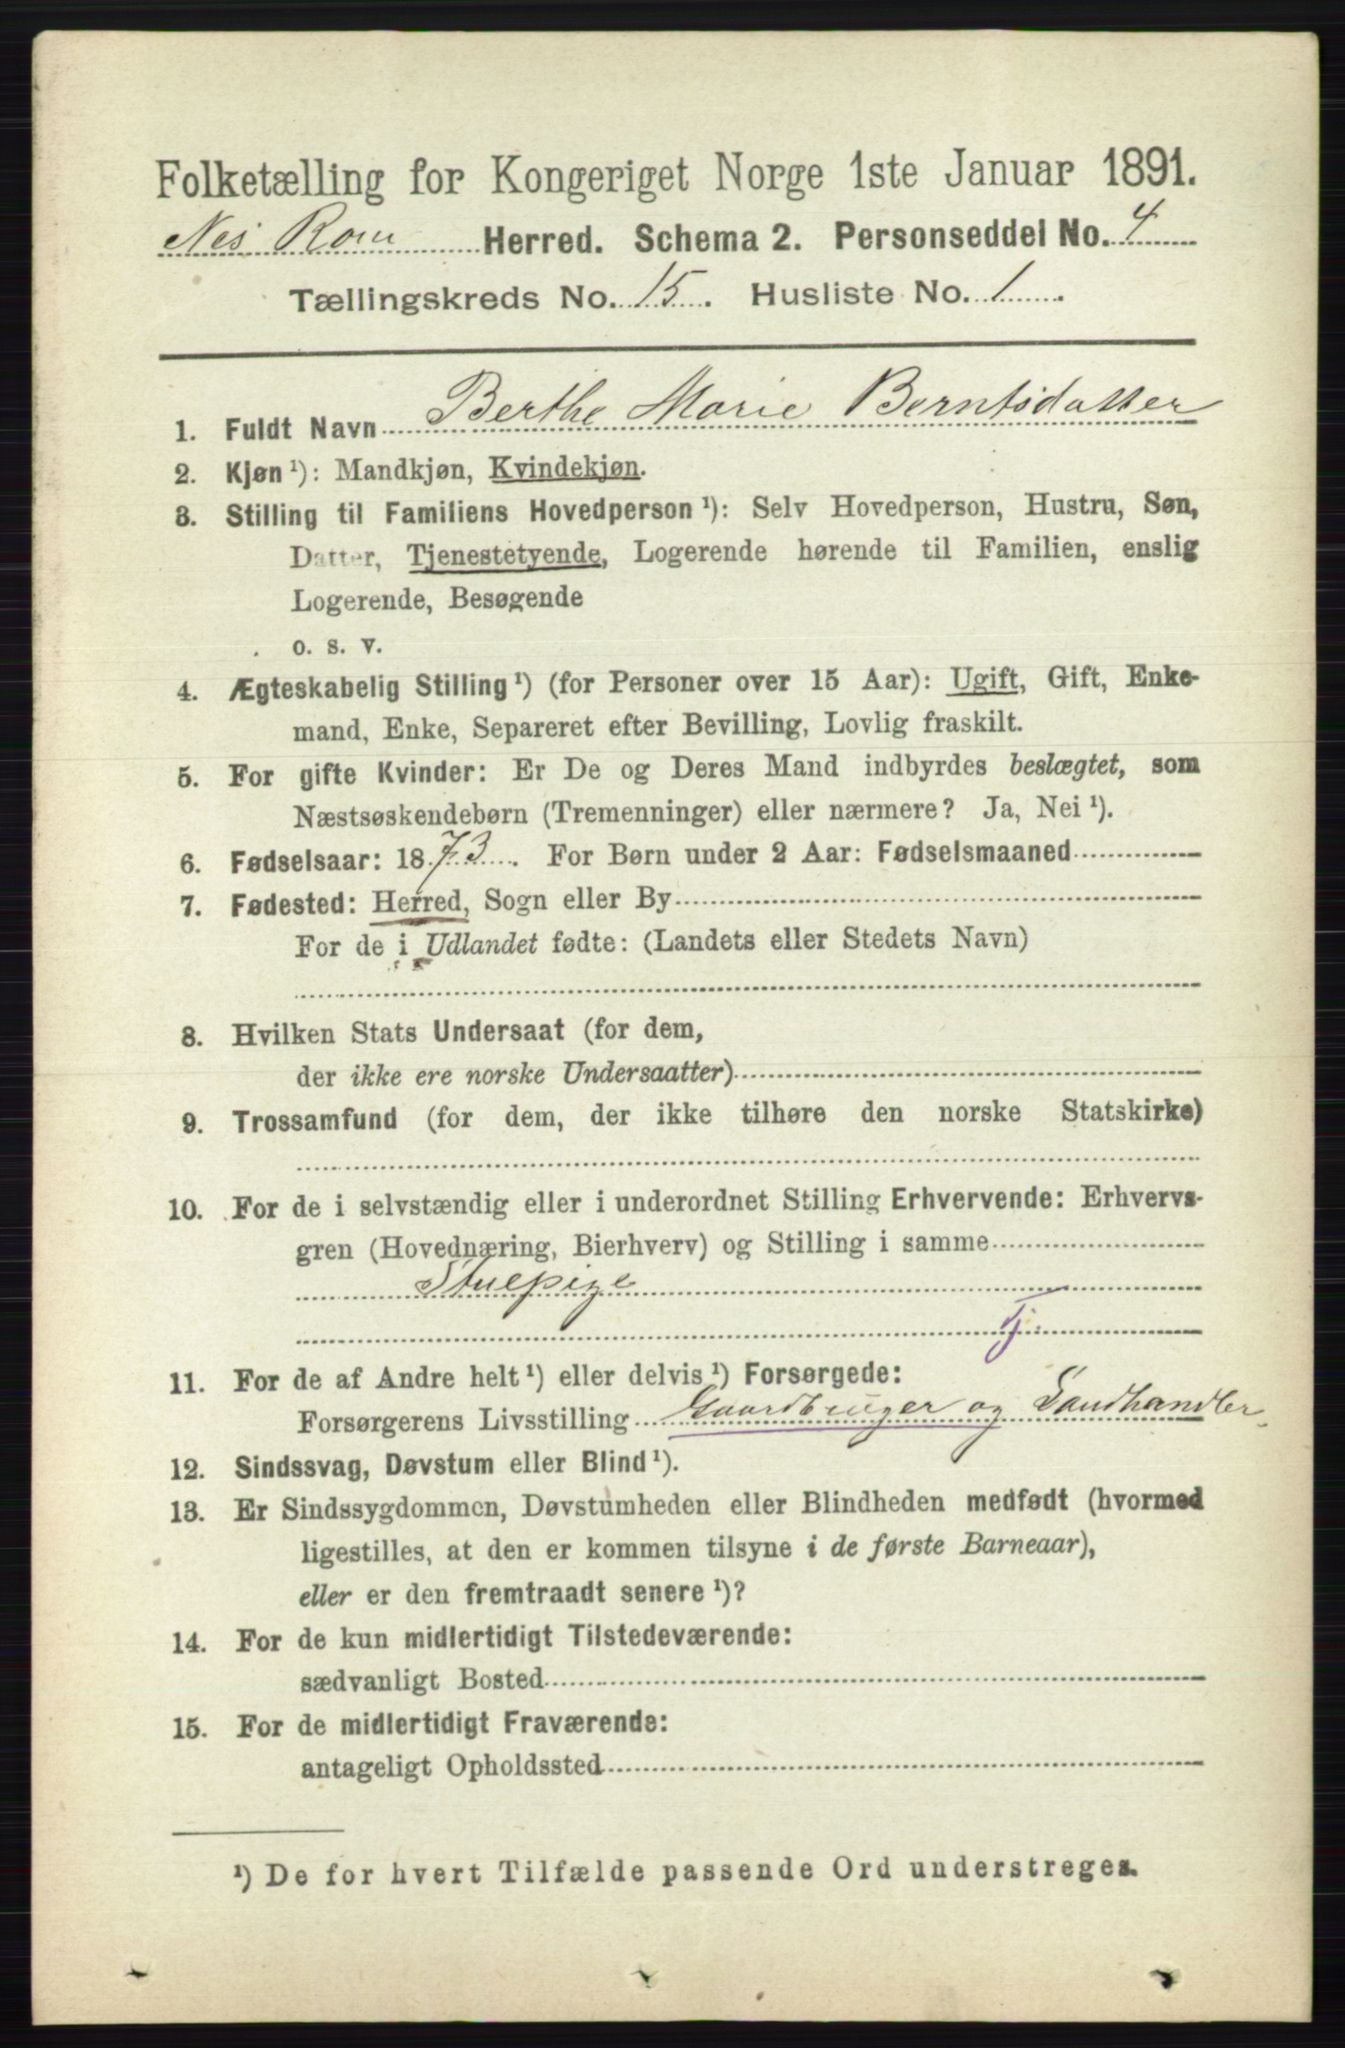 Folketælling for Kongeriget Norge 1ste Januar 1891.
Nes Rom Herred. Schema 2. Personseddel No. 4
Tællingskreds No. 15. Husliste No. 1.
1. Fuldt Navn Berthe Marie Berntsdatter
2. Kjøn ¹): Mandkjøn, Kvindekjøn.
3. Stilling til Familiens Hovedperson ¹): Selv Hovedperson, Hustru, Søn,
Datter, Tjenestetyende, Logerende hørende til Familien, enslig
Logerende, Besøgende
o. s. v.
4. Ægteskabelig Stilling ¹) (for Personer over 15 Aar): Ugift, Gift, Enke-
mand, Enke, Separeret efter Bevilling, Lovlig fraskilt.
5. For gifte Kvinder: Er De og Deres Mand indbyrdes beslægtet, som
Næstsøskendebørn (Tremenninger) eller nærmere? Ja, Nei ¹).
6. Fødselsaar: 1873. For Børn under 2 Aar: Fødselsmaaned
7. Fødested: Herred, Sogn eller By
For de i Udlandet fødte: (Landets eller Stedets Navn)
8. Hvilken Stats Undersaat (for dem,
der ikke ere norske Undersaatter)
9. Trossamfund (for dem, der ikke tilhøre den norske Statskirke)
10. For de i selvstændig eller i underordnet Stilling Erhvervende: Erhvervs-
gren (Hovednæring, Bierhverv) og Stilling i samme
Stuepige
Tj.
11. For de af Andre helt ¹) eller delvis ¹) Forsørgede:
Forsørgerens Livsstilling Gaardbruger og Landhandler
12. Sindssvag, Døvstum eller Blind ¹).
13. Er Sindssygdommen, Døvstumheden eller Blindheden medfødt (hvormed
ligestilles, at den er kommen tilsyne i de første Barneaar),
eller er den fremtraadt senere ¹)?
14. For de kun midlertidigt Tilstedeværende:
sædvanligt Bosted
15. For de midlertidigt Fraværende:
antageligt Opholdssted
¹) De for hvert Tilfælde passende Ord understreges.